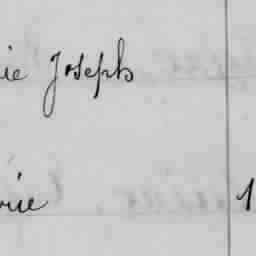 ie Joseph
rie 1